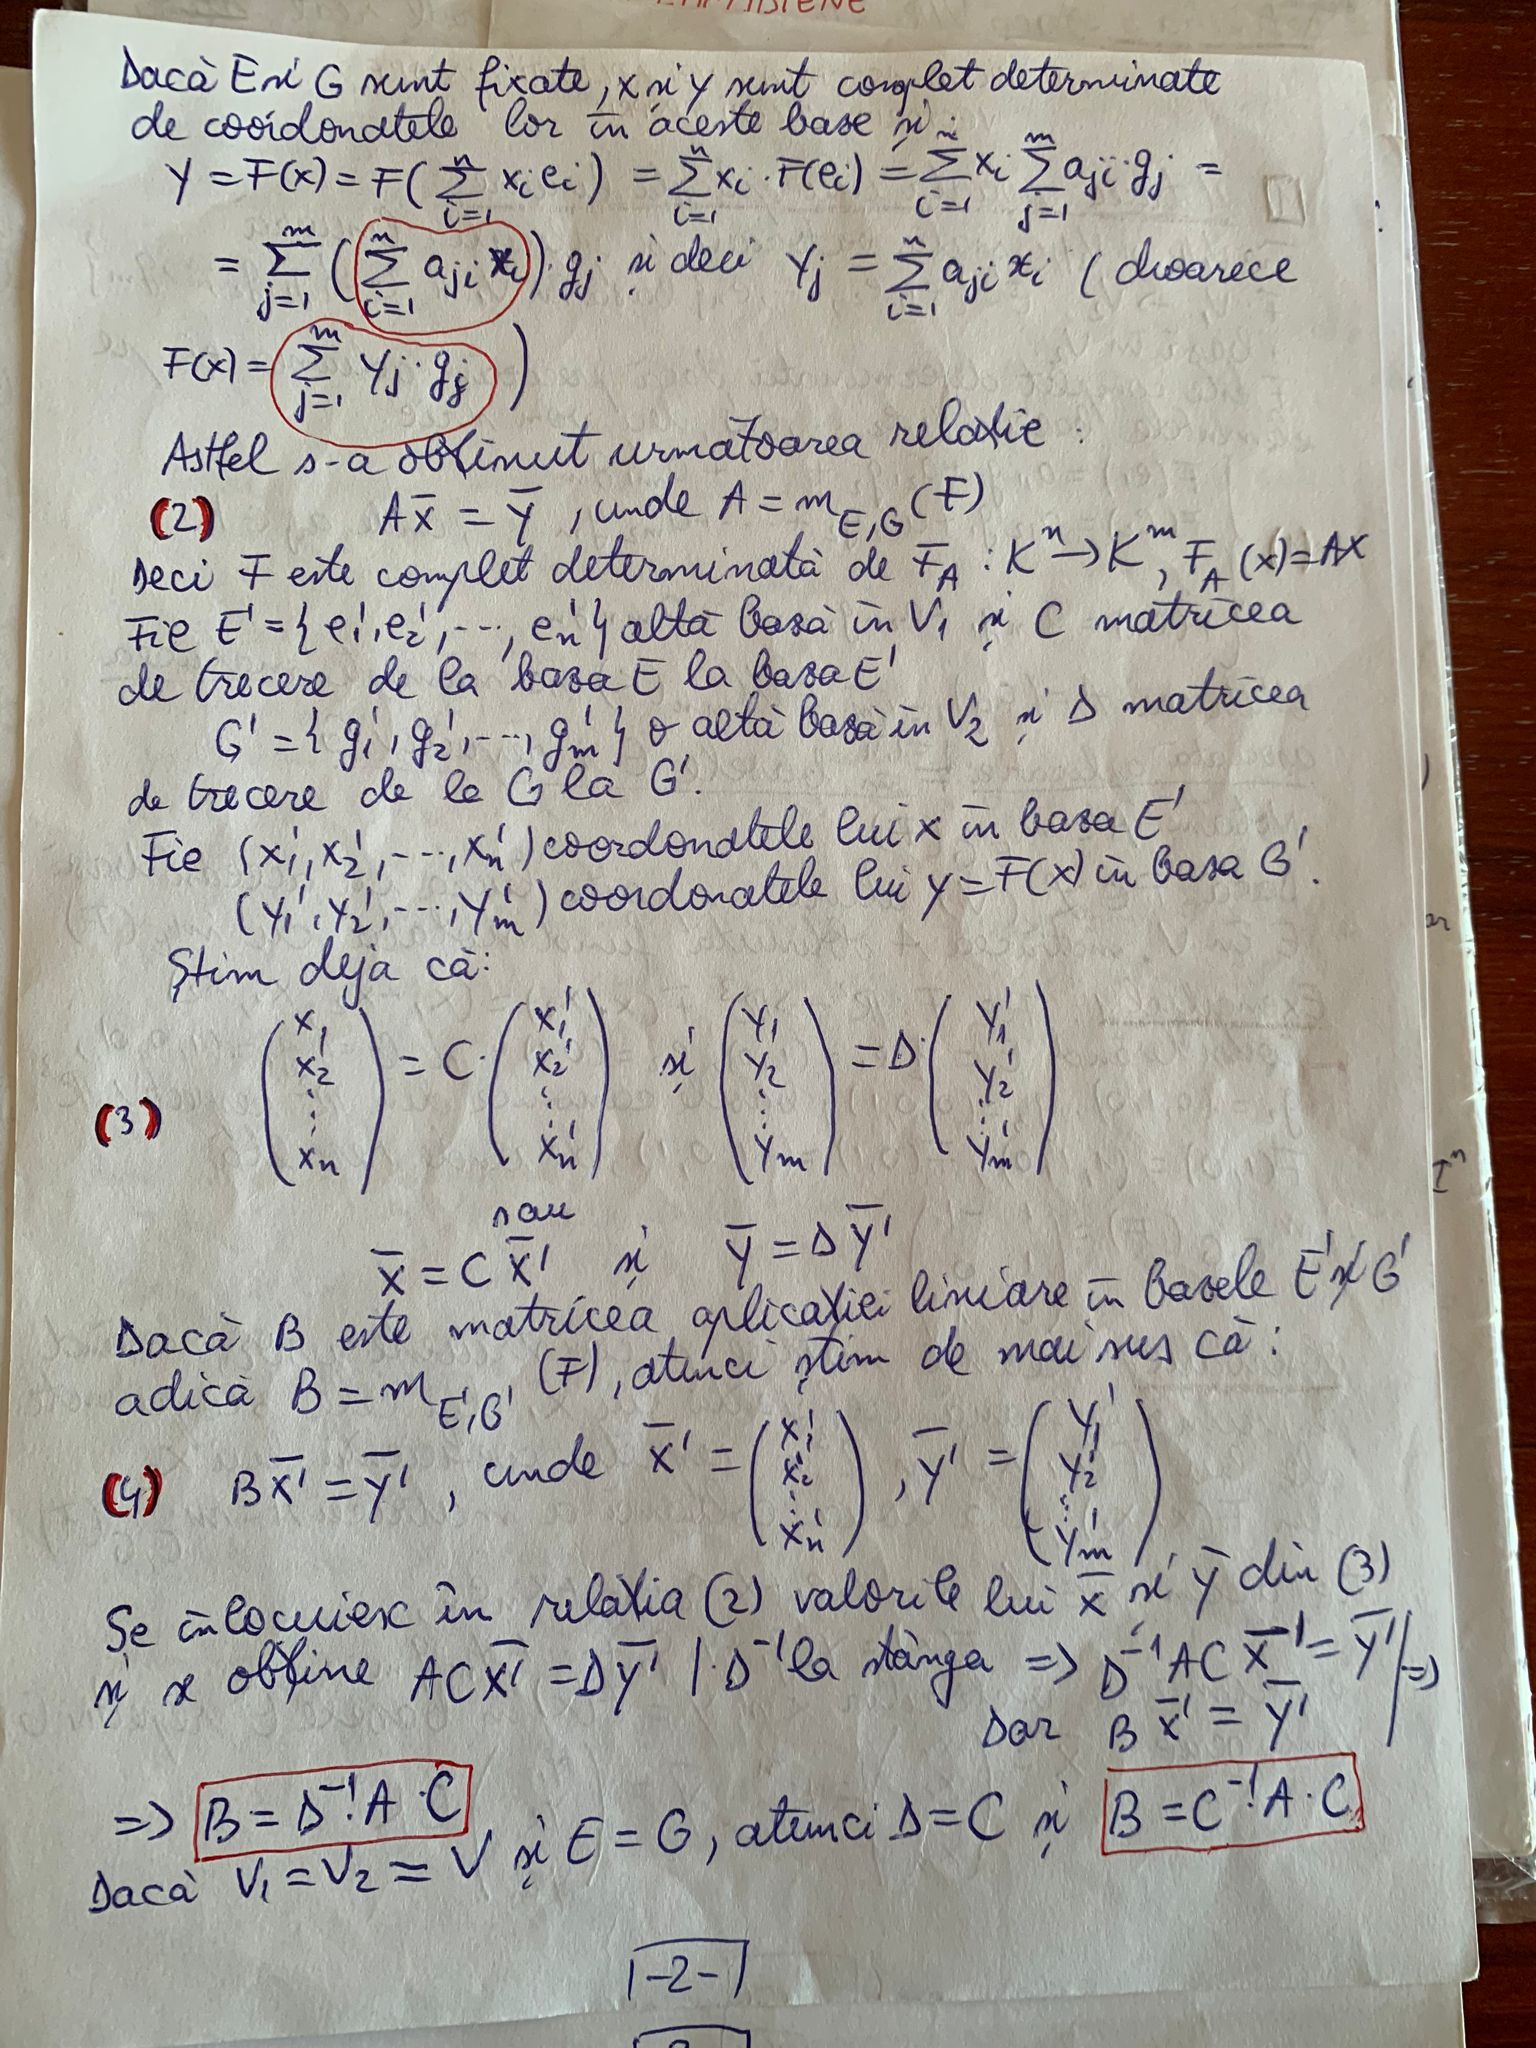 Dacă E și G sunt fixate, x și y sunt complet determinate
de coordonatele lor în aceste base și
y = F(x) = F(∑_{i=1}^{n} x_i e_i) = ∑_{i=1}^{n} x_i · F(e_i) = ∑_{i=1}^{n} x_i ∑_{j=1}^{m} a_{ji} · g_j =
= ∑_{j=1}^{m} (∑_{i=1}^{n} a_{ji} x_i) · g_j și deci y_j = ∑_{i=1}^{n} a_{ji} x_i (deoarece
F(x) = ∑_{j=1}^{m} y_j · g_j )
Astfel s-a obținut următoarea relație :
(2) A x̄ = ȳ , unde A = m_{E,G} (F)
Deci F este complet determinată de F_A : K^n → K^m, F_A (x) = AX
Fie E' = { e_1', e_2', ..., e_n' } altă bază în V_1 și C matricea
de trecere de la baza E la baza E'
G' = { g_1', g_2', ..., g_m' } o altă bază în V_2 și D matricea
de trecere de la G la G'.
Fie (x_1', x_2', ..., x_n') coordonatele lui x în baza E'
(y_1', y_2', ..., y_m') coordonatele lui y = F(x) în baza G'.
Știm deja că:
(3) (x_1 x_2 ⋮ x_n) = C · (x_1' x_2' ⋮ x_n') și (y_1 y_2 ⋮ y_m) = D · (y_1' y_2' ⋮ y_m')
sau
x̄ = C x̄' și ȳ = D ȳ'
Dacă B este matricea aplicației liniare în bazele E' și G'
adică B = m_{E',G'} (F), atunci știm de mai sus că :
(4) B x̄' = ȳ' , unde x̄' = (x_1' x_2' ⋮ x_n') , ȳ' = (y_1' y_2' ⋮ y_m')
Se înlocuiesc în relația (2) valorile lui x̄ și ȳ din (3)
și se obține AC x̄' = D ȳ' | · D^{-1} la stânga => D^{-1} AC x̄' = ȳ' | =>
Dar B x̄' = ȳ'
=> B = D^{-1} · A · C
Dacă V_1 = V_2 = V și E = G, atunci D = C și B = C^{-1} · A · C
-2-